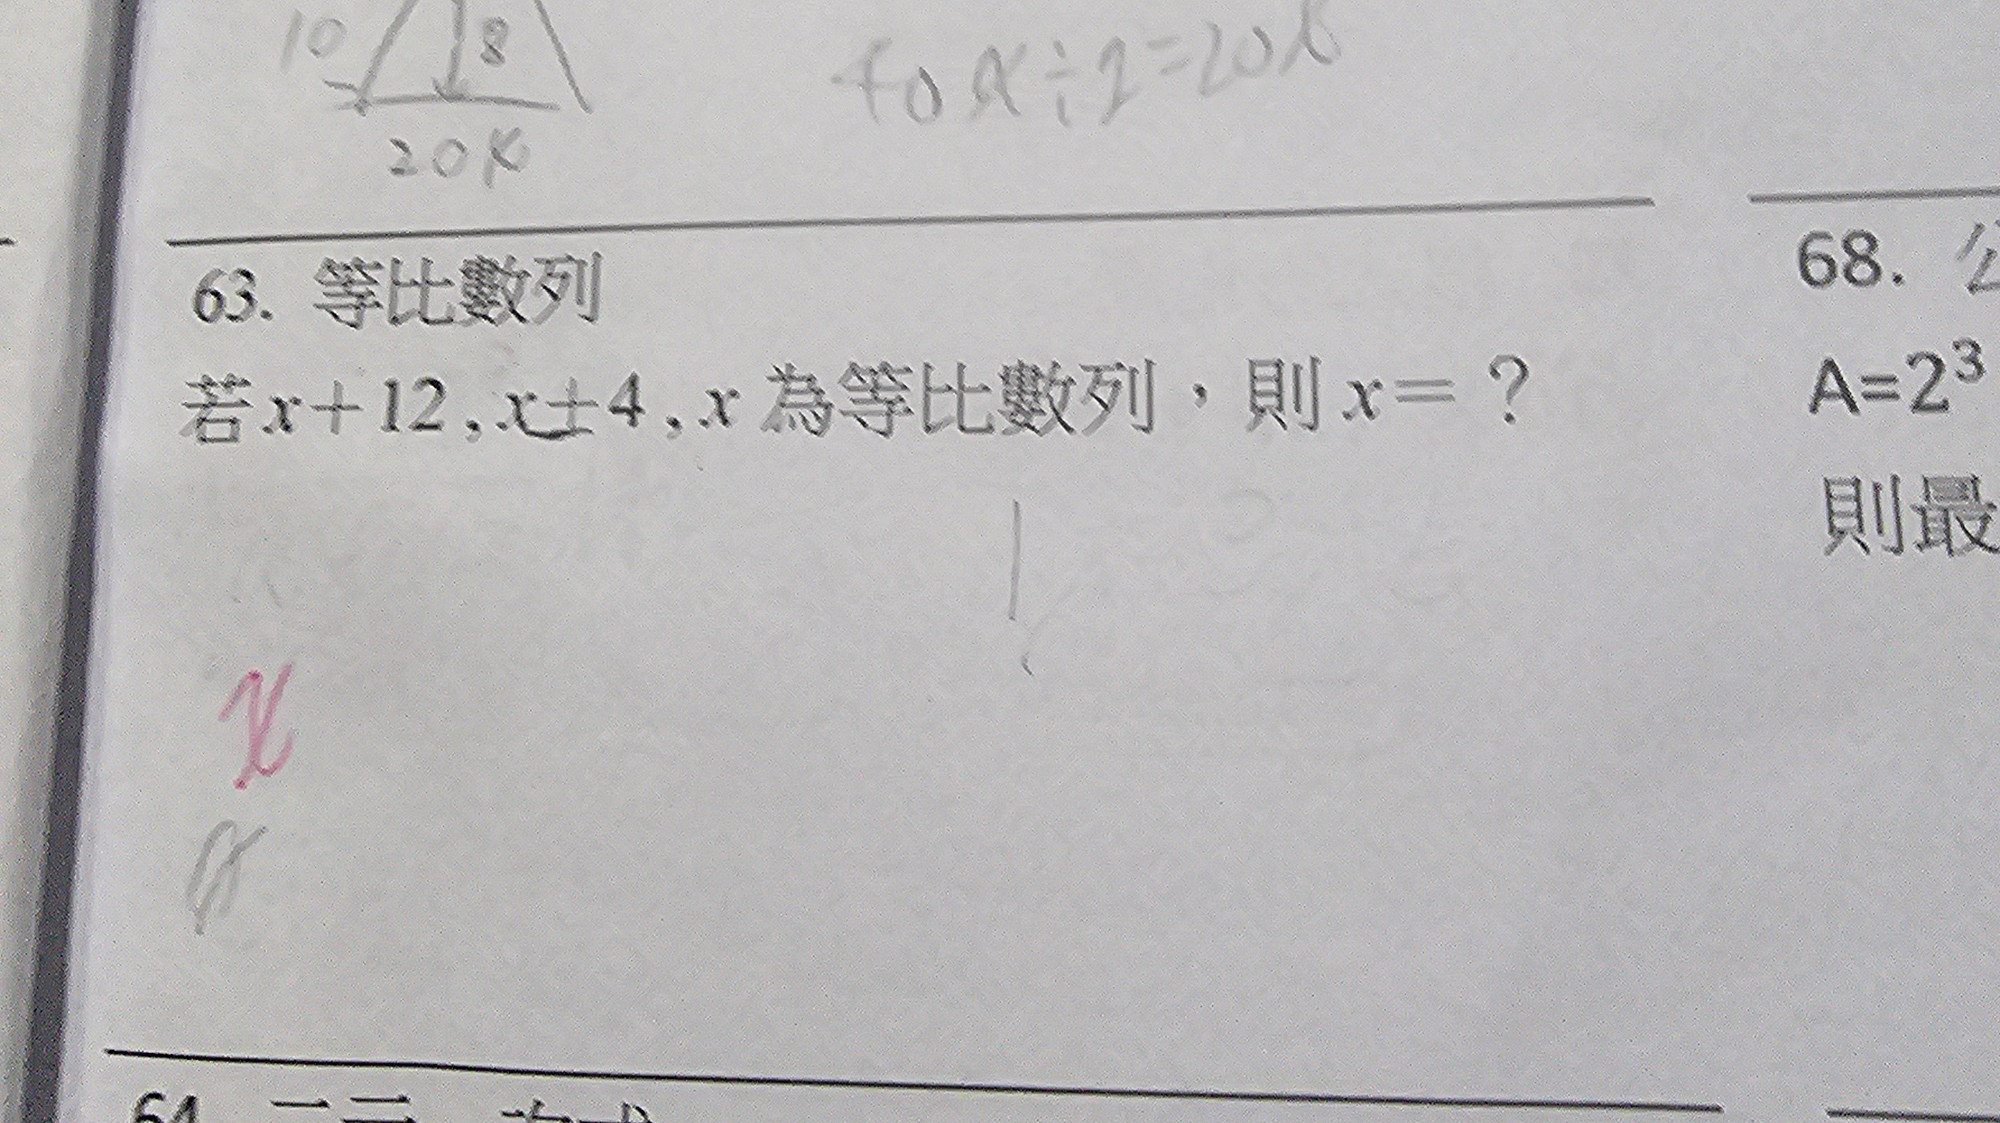 10 8
20x
40x÷2=20x
63. 等比數列
若x+12,x+4,x為等比數列，則x=？
x
68. 公
A=2³
則最
64